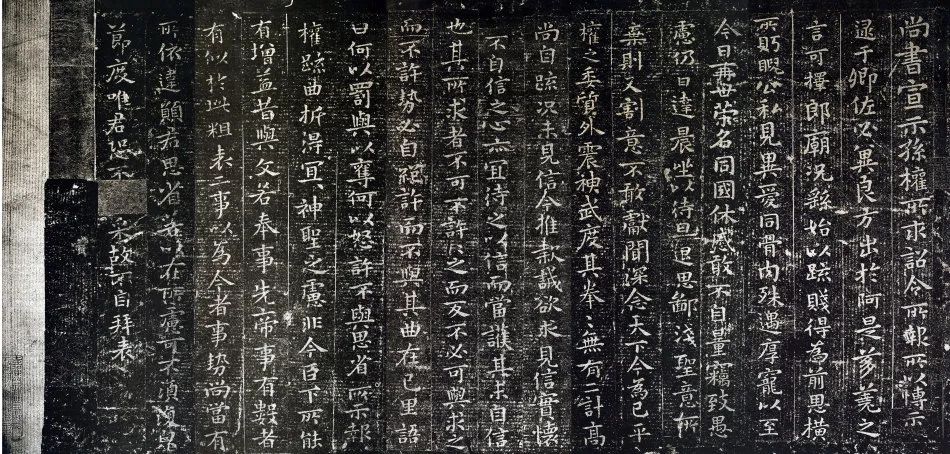 尚書宣示孫權所求詔令所報所以博示
逮于卿佐必冀良方出於阿是芻蕘之
言可擇郎廟況繇始以疏賤得為前恩橫
所盼睨公私見異愛同骨肉殊遇厚寵以至
今日再世榮名同國休慼敢不自量竊致愚
慮仍日達晨坐以待旦退思鄙淺聖意所
棄則又割意不敢獻聞深念天下今為已平
權之委質外震神武度其拳〻無有二計高
尚自疏況未見信今推款誠欲求見信實懷
不自信之心亦宜待之以信而當護其未自信
也其所求者不可不許〻之而反不必可與求之
而不許勢必自絕許而不與其曲在己里語
曰何以罰與以奪何以怒許不與思省所示報
權疏曲折得宜〻神聖之慮非今臣下所能
有增益昔與文若奉事先帝事有數者
有似於此粗表二事以為今者事勢尚當有
所依違願君思省若以在所慮可不須復貌
節度唯君恐不采故不自拜表